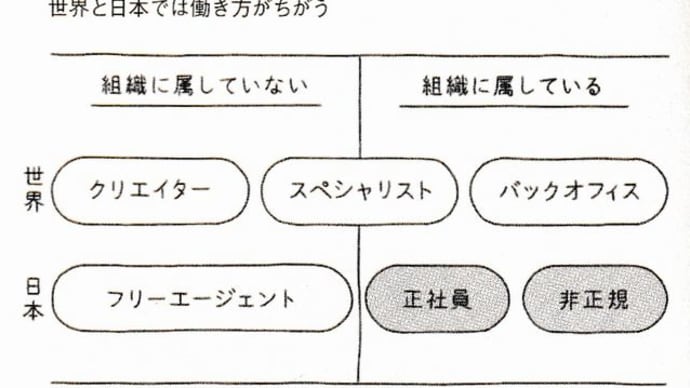 世界と日本では働き方がちがう
組織に属していない
組織に属している
世界
クリエイター
スペシャリスト
バックオフィス
日本
フリーエージェント
正社員
非正規